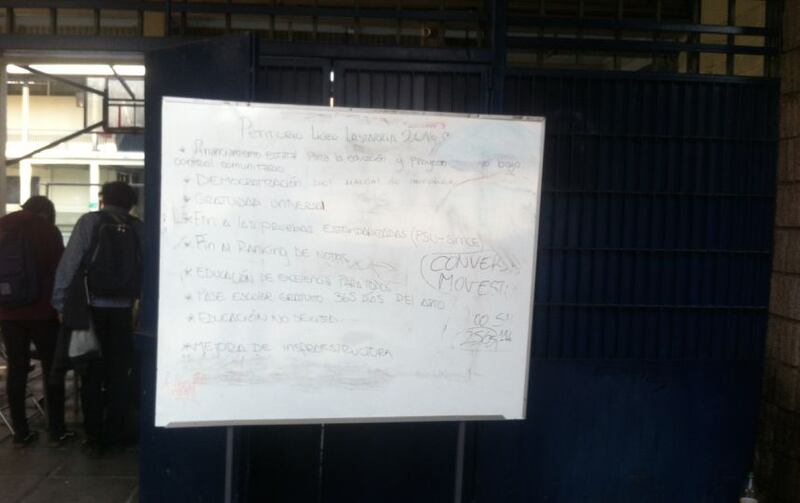 PETITORIO LICEO LASTARRIA
* FINANCIAMIENTO ESTATAL PARA LA EDUCACIÓN Y PROYECTO BAJO
CONTROL COMUNITARIO
* DEMOCRATIZACIÓN DEL MANUAL DE
* GRATUIDAD UNIVERSAL
* FIN A LAS PRUEBAS ESTANDARIZADAS (PSU-SIMCE)
* FIN AL RANKING DE NOTAS
* EDUCACIÓN DE EXCELENCIA PARA TODOS
* PASE ESCOLAR GRATUITO 365 DÍAS DEL AÑO
* EDUCACIÓN NO SEXISTA
* MEJORA DE INFRAESTRUCTURA